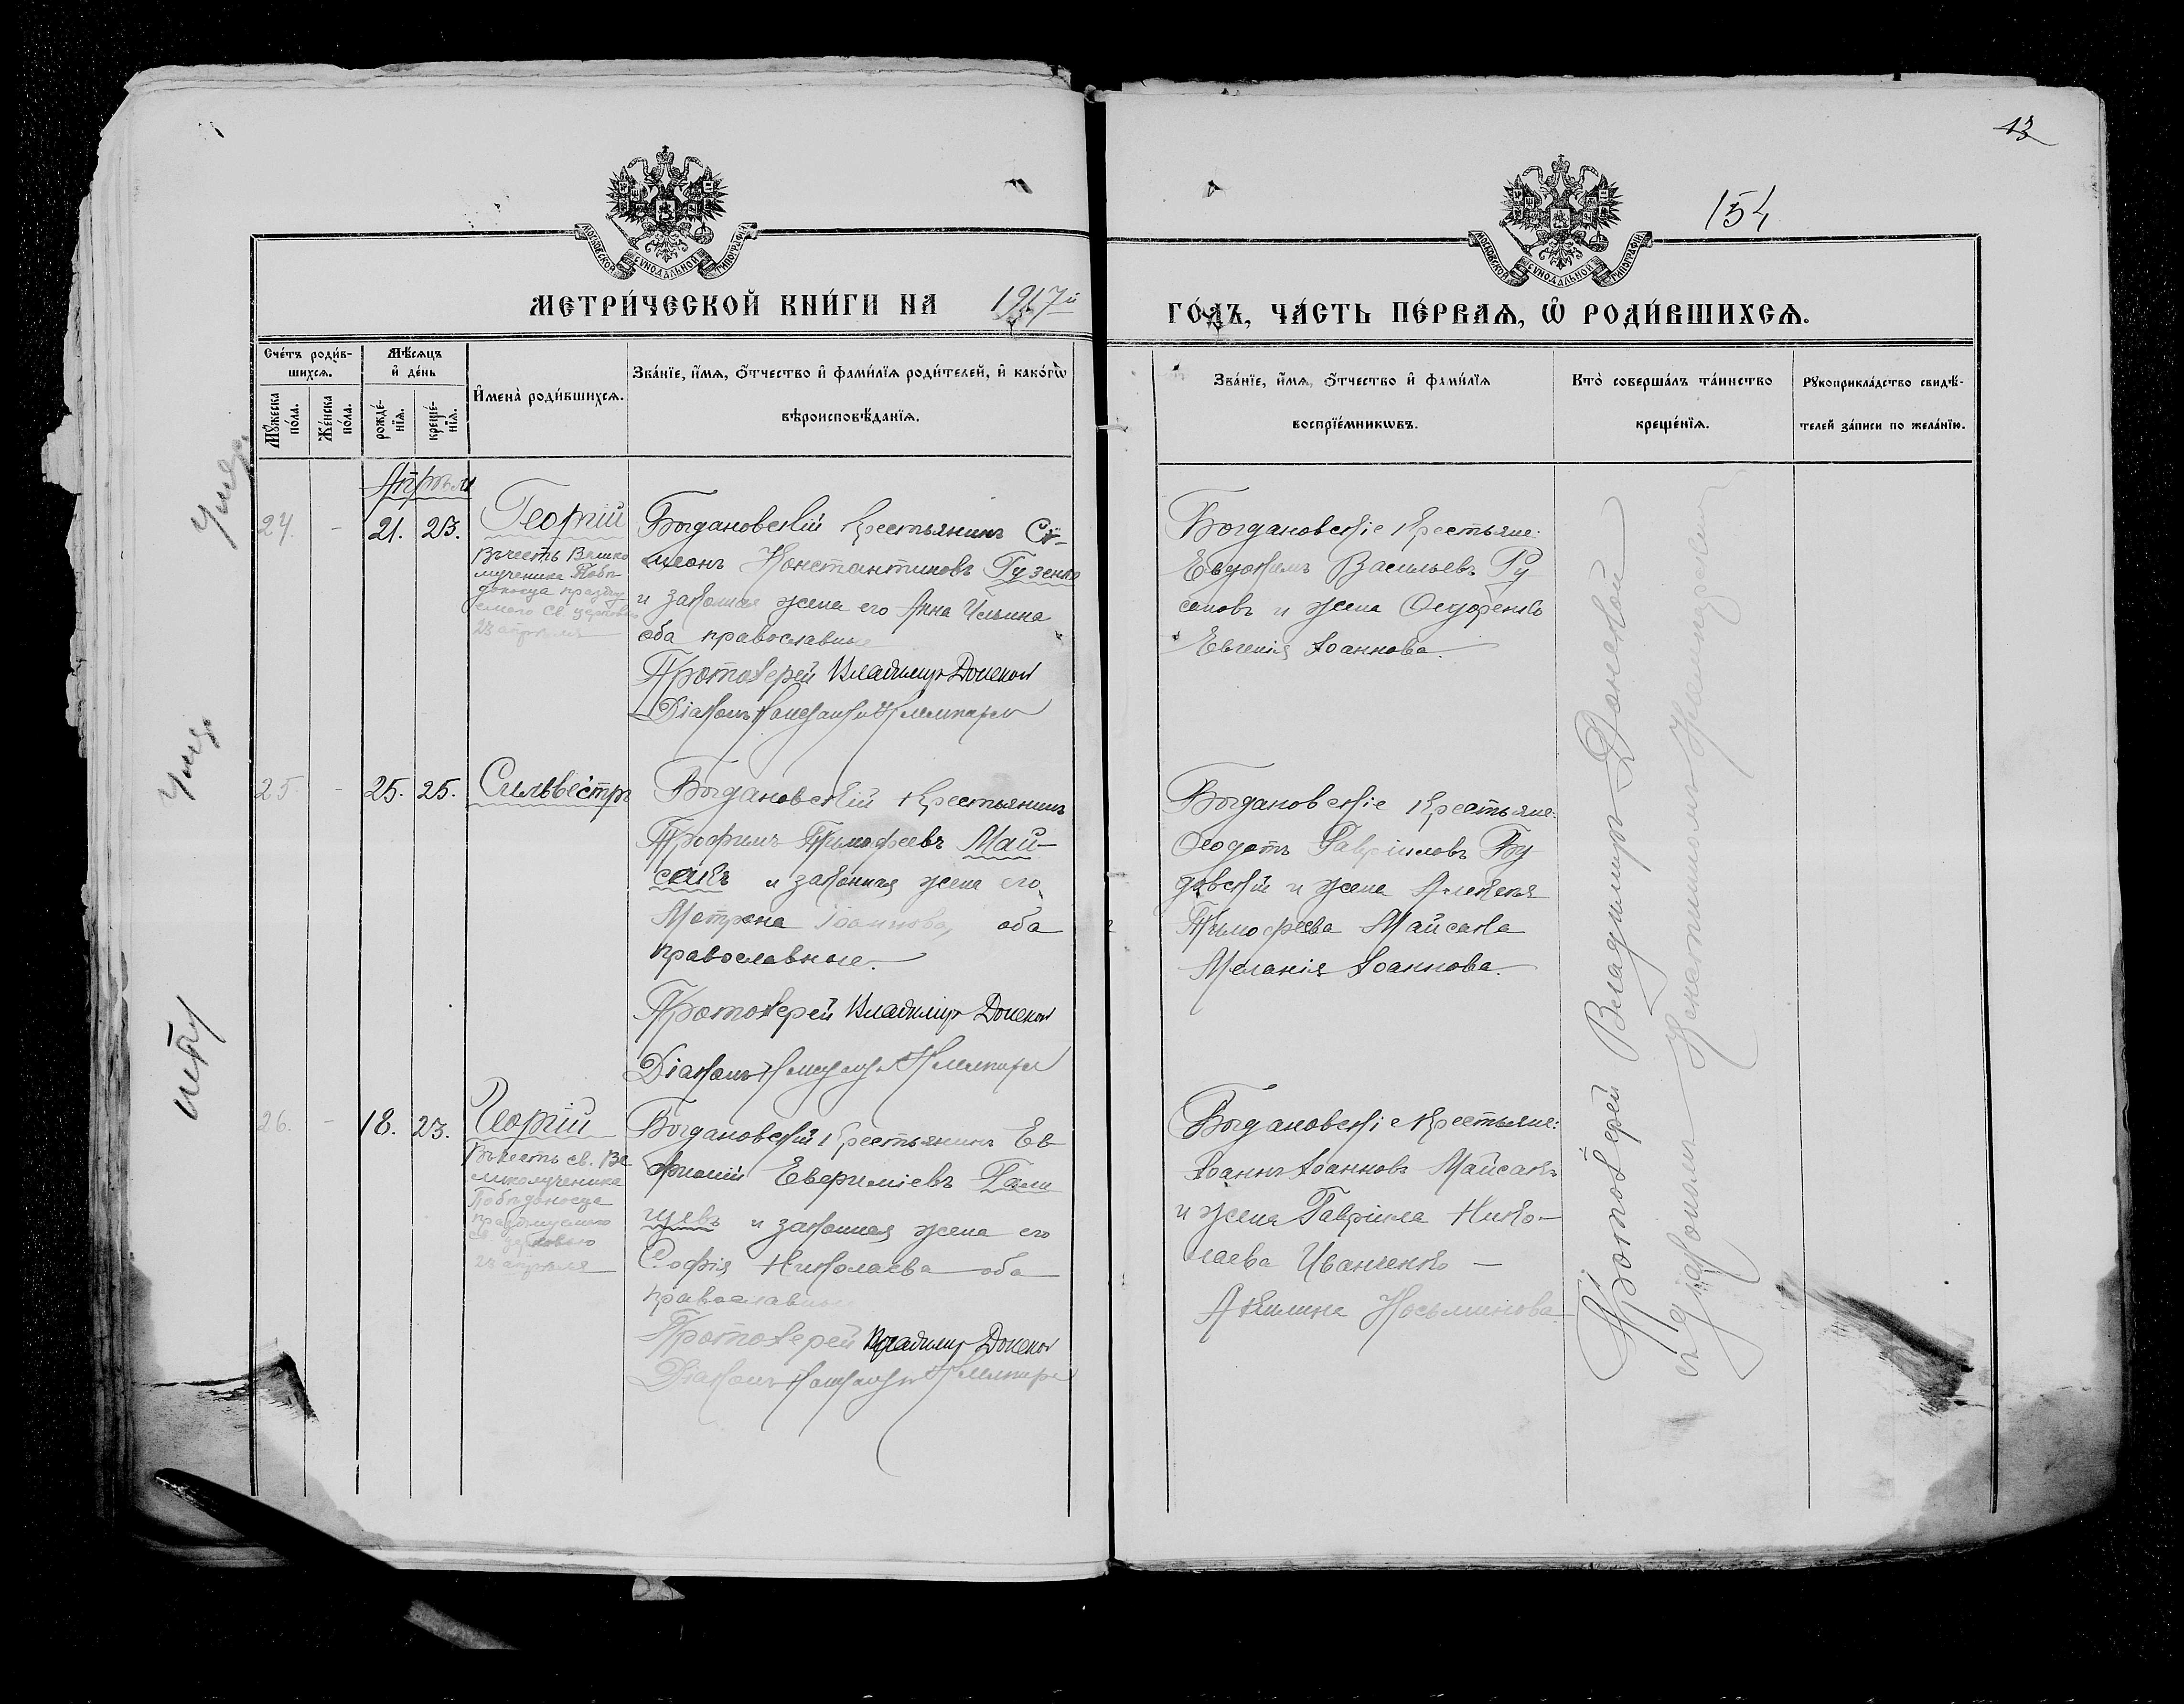 13
154
МОСКОВСКОЙ СѴНОДАЛЬНОЙ ТИПОГРАФІИ
МОСКОВСКОЙ СѴНОДАЛЬНОЙ ТИПОГРАФІИ
МЕТРИ́ЧЕСКОЙ КНИ́ГИ НА 1917й
ГО́ДЪ, ЧА́СТЬ ПЕ́РВАѦ, Ѡ҆ РОДИ́ВШИХСѦ.
Сче́тъ роди́в-
шихсѧ.
Мꙋ́жеска по́ла.
Же́нска по́ла.
Мѣ́сѧцъ
и҆ де́нь
рожде́-
нїѧ.
креще́-
нїѧ.
И҆мена̀ роди́вшихсѧ.
Зва́нїе, и҆́мѧ, ѻ҆́тчество и҆ фами́лїѧ роди́телей, и҆ како́гѡ
вѣроисповѣ́данїѧ.
Зва́нїе, и҆́мѧ, ѻ҆́тчество и҆ фами́лїѧ
воспрїе́мникѡвъ.
Кто̀ соверша́лъ та́инство
креще́нїѧ.
Рꙋкоприкла́дство свидѣ́-
телей за́писи по жела́нїю.
Апрѣля
24 - 21. 23.
Георгій
Въ честь Велико
мученика Побѣ
доносца праздну
емаго св. церковію
23 апрѣля
Богдановскій крестьянинъ Сѵ-
меонъ Константиновъ Гузенко
и законная жена его Анна Ильина
оба православные
Протоіерей Владимиръ Донской
Діаконъ
Богдановскіе крестьяне:
Евдокимъ Васильевъ Ру
сановъ и жена
Евгенія Іоаннова.
25. - 25. 25.
Сильвестръ
Богдановскій крестьянинъ
Трофимъ Тимофеевъ Май-
сакъ и законная жена его
Матрона Іоаннова, оба
православные.
Протоіерей Владиміръ Донской
Діаконъ
Богдановскіе крестьяне:
Ѳеодотъ Гавріиловъ Бу
довскій и жена Алексѣя
Тимофеева Майсака
Меланія Іоаннова.
26. - 18. 23.
Георгій
Въ честь св. Ве
ликомученика
Побѣдоносца
празднуемаго
св. церковью
23 апрѣля
Богдановскій крестьянинъ Ев
фимій Евфиміевъ Гали
щевъ и законная жена его
Софія Николаева оба
православные
Протоіерей Владимиръ Донской
Діаконъ
Богдановскіе крестьяне:
Іоаннъ Іоанновъ Майсакъ
и жена Гавріила Нико-
лаева Иванченко —
Акилина Косьминова
Протоіерей Владимиръ Донской
съ діакономъ Константиномъ
Умер.
Умер.